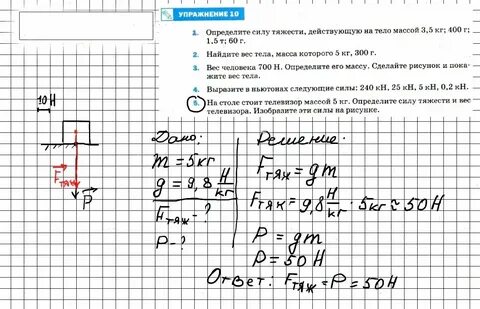 УПРАЖНЕНИЕ 10
1. Определите силу тяжести, действующую на тело массой 3,5 кг; 400 г; 1,5 т; 60 г.
2. Найдите вес тела, масса которого 5 кг, 300 г.
3. Вес человека 700 Н. Определите его массу. Сделайте рисунок и покажите вес тела.
4. Выразите в ньютонах следующие силы: 240 кН, 25 кН, 5 кН, 0,2 кН.
5. На столе стоит телевизор массой 5 кг. Определите силу тяжести и вес телевизора. Изобразите эти силы на рисунке.
10 Н
Fтяж
P
Дано:
m = 5 кг
g = 9,8 Н/кг
Fтяж - ?
P - ?
Решение:
Fтяж = gm
Fтяж = 9,8 Н/кг · 5 кг ≈ 50 Н
P = gm
P = 50 Н
Ответ: Fтяж = P = 50 Н